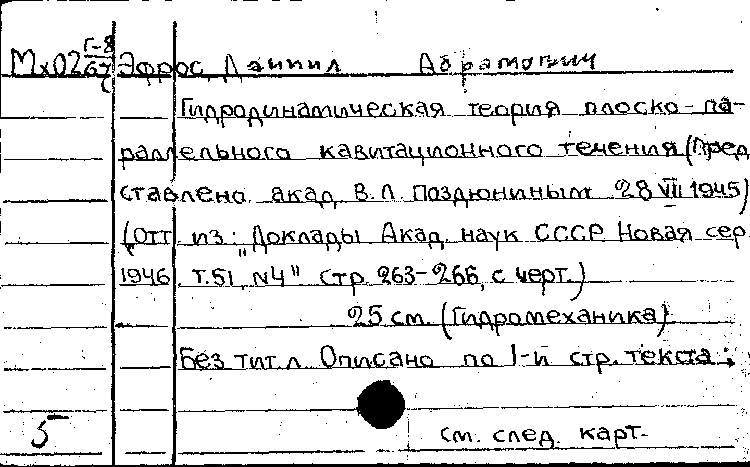 Мх02 Г-8/67 Эфрос, Даниил Абрамович
Гидродинамическая теория плоско-па-
раллельного кавитационного течения (Пред
ставлено акад. В. Л. Поздюниным 28 VII 1945)
(Отт из: „Доклады Акад. наук СССР Новая сер
1946, т. 51, №4" стр. 263-266, с черт.)
25 см. (Гидромеханика)
Без тит л. Описано по 1-й стр. текста;
5 см. след. карт.